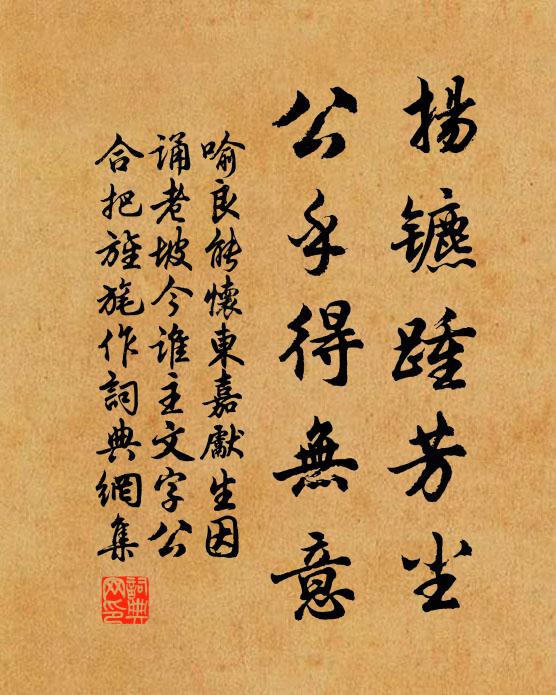 揚鑣踵芳尘
公乎得無意
喻良能懷東嘉獻生因
誦老坡今誰主文字公
合把旌旄作詞典網集
詞典
网印